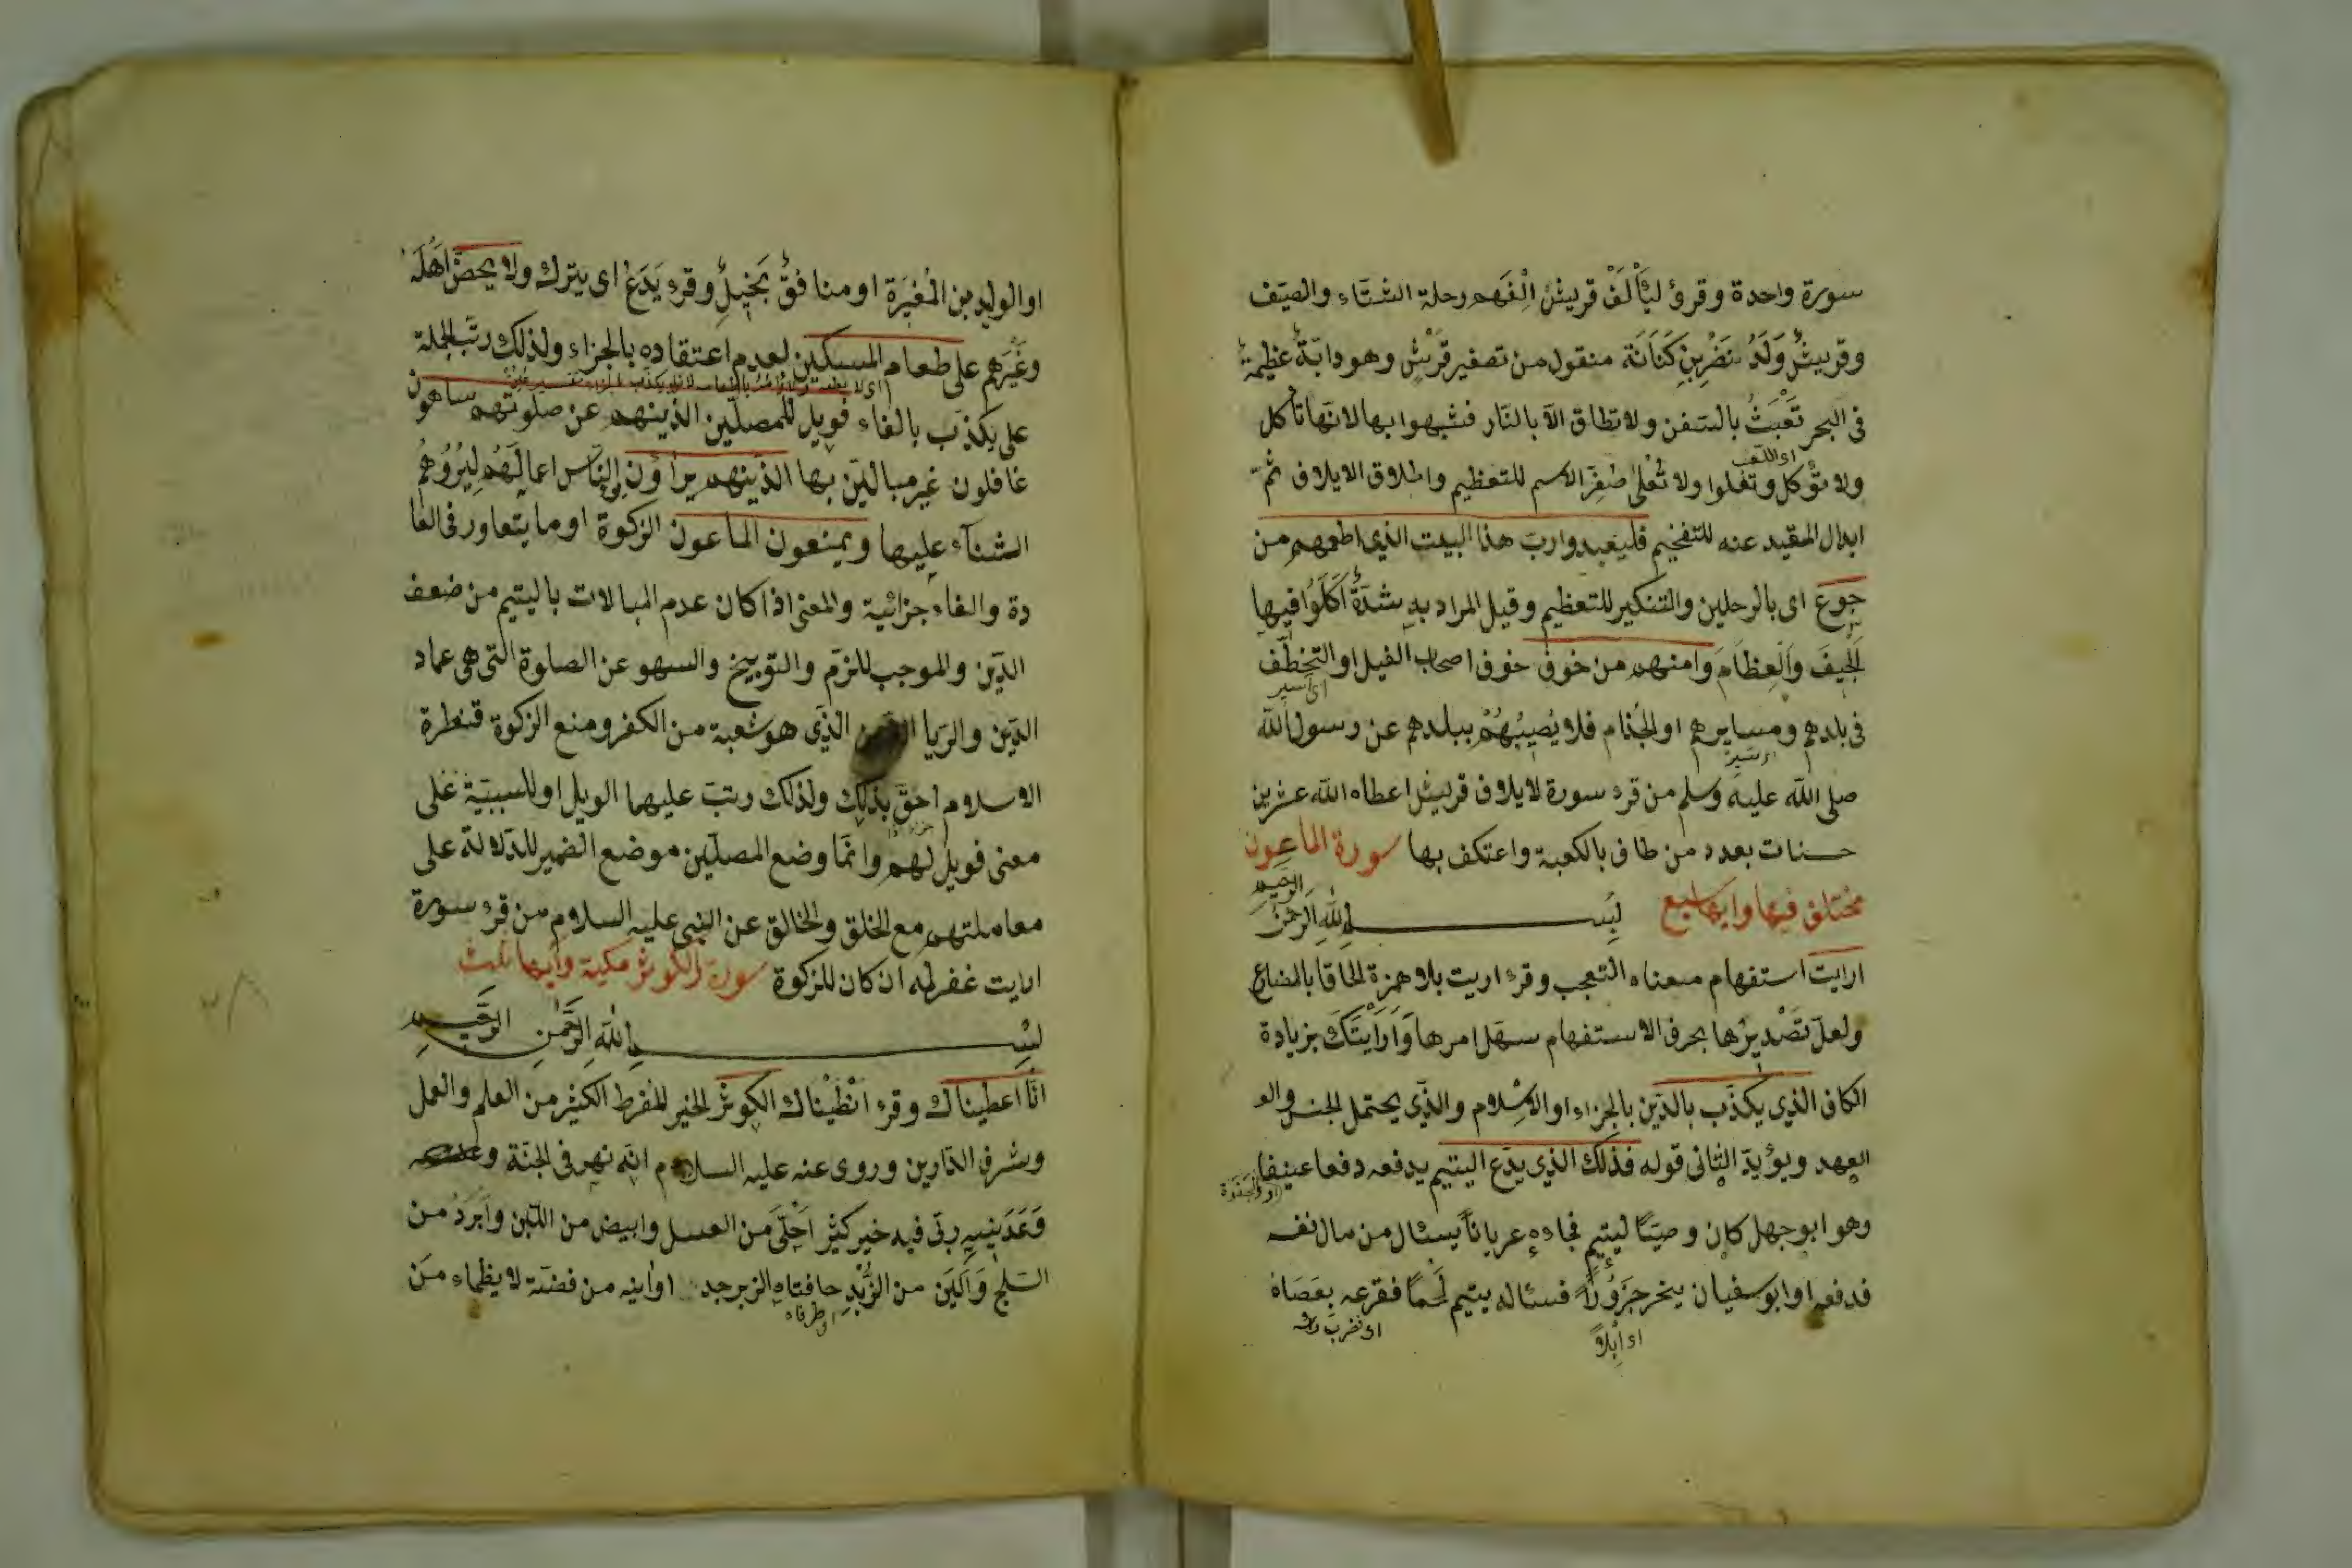 سورة واحدة وقرئ ليَأْلَفْ قريشٌ اِلْفَهم رحلة الشتاء والصيف
وقريشٌ وَلَدُ نَضْرِبنِ كَنَانَة منقول من تصغير قَرْشٍ وهو دابّةٌ عظيمةٌ
فى البحر تَعْبَثُ بالسّفن ولا تطاق الّا بالنّار فشبهوا بها لانّها تأكل
اى اللّعب
ولا تؤكل وتعلوا ولا تُعْلٰى صُغِّر الاسم للتعظيم واطلاق الايلاف ثمّ
ابدال المقيد عنه للتفخيم فليعبدوا ربّ هذا البيت الذى اطعمهم من
جوع اى بالرحلين والتنكير للتعظيم وقيل المراد به شدّةٌ اَكَلُوا فيها
الجِيفَ والعِظَامَ وامنهم من خوف خوف اصحاب الفيل او التخطّف
فى بلدهم ومسايرهم او الجُذام فلا يُصِيبُهُمْ ببلدهم عن رسول الله
صلى الله عليه وسلم من قرء سورة لايلاف قريش اعطاه الله عشرين
حسنات بعدد من طاف بالكعبة واعتكف بها سورة الماعون
مختلف فيها وايها سبع بسم الله الرحمن الرحيم
ارايت استفهام معناه التعجب وقرء اريت بلا همزة الحاقا بالمضارع
ولعلّ تَصْدِيرُها بحرف الاستفهام سهّل امرها وَاَرَاَيْتَكَ بزيادة
الكاف الذى يكذّب بالدّين بالجزاء او الاسلام والذى يحتمل الجنس والو
العهد ويؤيدّ الثانى قوله فذلك الذى يدّع اليتيم يدفعه دفعا عنيفا
وهو ابو جهل كان وصيًّا ليتيمٍ فجاءه عرياناً يسئال من مال نفسه
فدفعه او ابو سفيان ينحر جَزُوراً فسئاله يتيم لَحْماً فقرعه بعَصَاهُ
اى اِبِلاً
او الوليد بن المُغيَرَة او منافقٌ بَخِيلٌ وقرء يَدَعُ اى يترك ولا يحضّ اَهْلَهُ
وغَيْرَهم على طعام المسكين لعدم اعتقاده بالجزاء ولذلك رتّب الجملة
على يكذّب بالفاء فويل للمصلّين الذينهم عن صلوتهم ساهون
غافلون غير مبالين بها الذينهم يراؤن النّاس اعمالَهُم لِيُرُوهُمُ
الثناء عليها ويمنعون الماعون الزكوة او ما يتعاور فى العا
دة والفاء جزائية والمعنى اذا كان عدم المبالات باليتيم من ضعف
الدّين والموجب للذم والتوبيخ والسهو عن الصلوة التى هى عماد
الدّين والريا الذى هو شعبة من الكفر ومنع الزكوة قنطرة
الاسلام احقّ بذلك ولذلك رتبّ عليهما الويل او للسببيّة على
معنى فويل لهم وانّما وضع المصلّين موضع الضمير للدّلالة على
معاملتهم مع الخلق والخالق عن النبى عليه السلام من قرء سورة
ارايت غفر له ان كان للزكوة سورة الكوثر مكية وايها ثلث
بسم الله الرحمن الرحيم
انّا اعطيناك وقرء انْطَيْناك الكوثر الخير المفرط الكثير من العلم والعمل
وشرف الدّارين وروى عنه عليه السلام انّه نهر فى الجنّة
وَعَدَنِيهِ ربّى فيه خير كثير اَحْلٰى من العسل وابيض من اللّبن واَبْرَدُ من
الثلج وَاَلْيَن من الزُّبْدِ حافتاه الزبرجد اوانيه من فضّة لا يظماء من
اى طرفاه